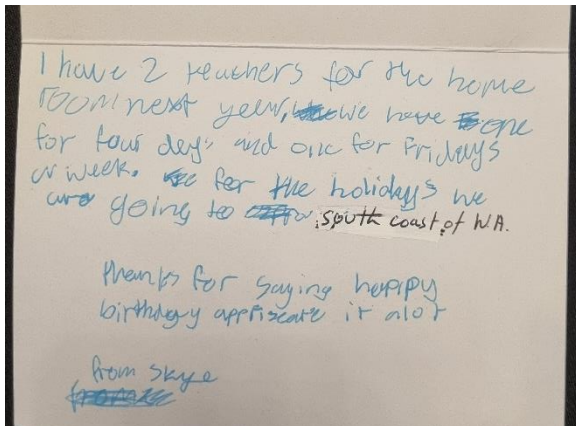 I have 2 teachers for the home
room next year, we have one
for four days and one for Fridays
a week. for the holidays we
are going to south coast of W.A.
thanks for saying happpy
birthday appriscate it alot
from Skye